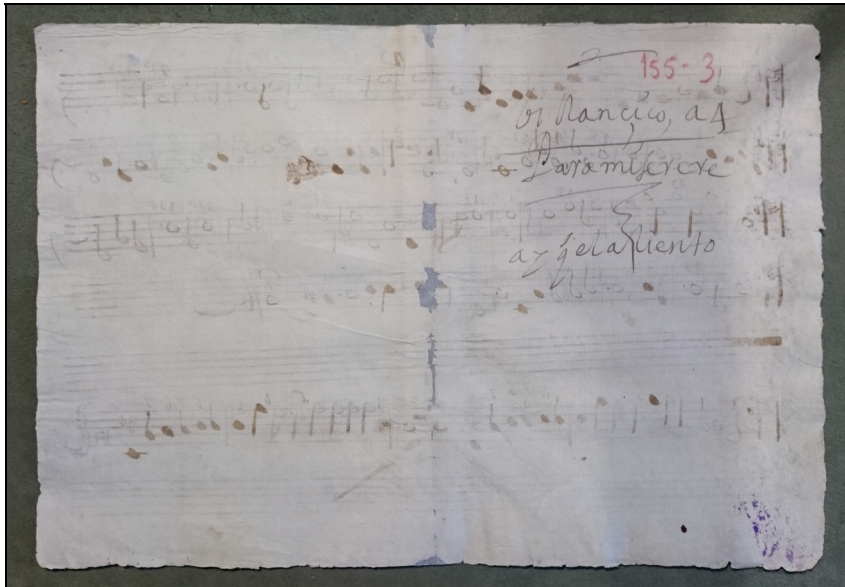 155-3
Vi llancico, a 4
Para miserere
ay q̃ el aliento